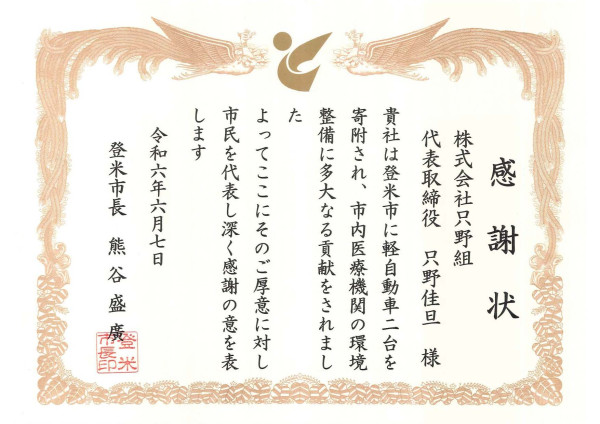 感謝状
株式会社只野組
代表取締役　只野佳旦　様
貴社は登米市に軽自動車二台を
寄附され、市内医療機関の環境
整備に多大なる貢献をされまし
た
よってここにそのご厚意に対し
市民を代表し深く感謝の意を表
します
令和六年六月七日
登米市長　熊谷盛廣
登米
市長印